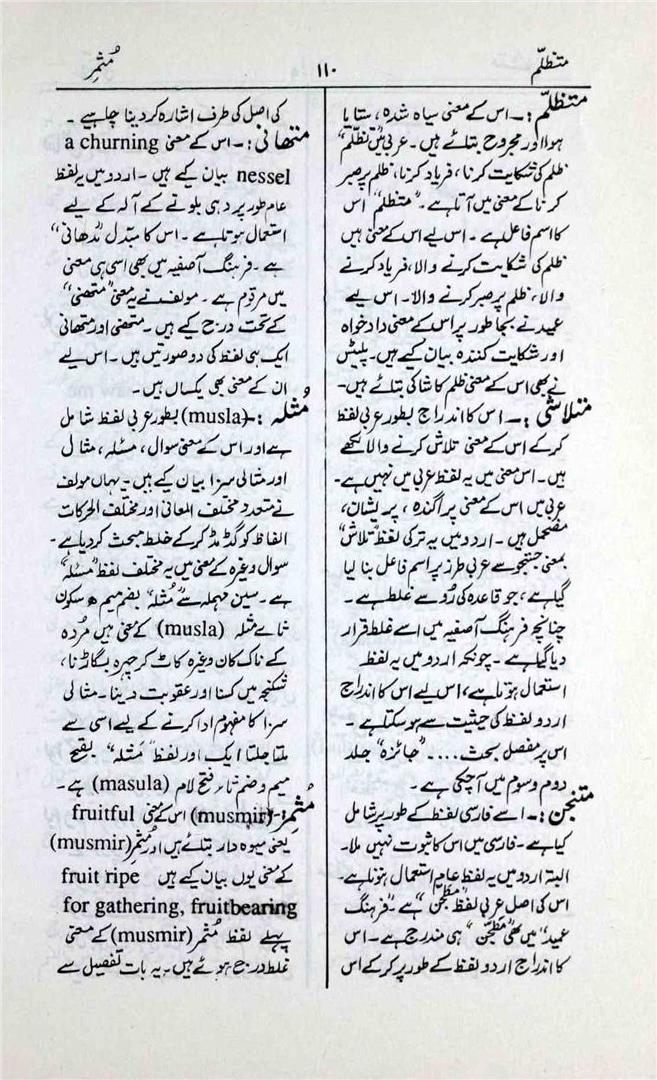 متظلّم
۱۱۰
مُثمِر
متظلّم :۔ اس کے معنی سیاہ شدہ، ستایا
ہوا اور مجروح بتائے ہیں۔ عربی میں "تظلّم"
ظلم کی شکایت کرنا، فریاد کرنا، ظلم پر صبر
کرنا کے معنی میں آتا ہے۔ "متظلم" اس
کا اسم فاعل ہے۔ اس لیے اس کے معنی ہیں
ظلم کی شکایت کرنے والا، فریاد کرنے
والا، ظلم پر صبر کرنے والا۔ اس لیے
عمید نے بجا طور پر اس کے معنی دادخواہ
اور شکایت کنندہ بیان کیے ہیں۔ پلیٹس
نے بھی اس کے معنی ظلم کا شاکی بتائے ہیں۔
متلاشی :۔ اس کا اندراج بطور عربی لفظ
کرکے اس کے معنی تلاش کرنے والا لکھے
ہیں۔ اس معنی میں یہ لفظ عربی میں نہیں ہے۔
عربی میں اس کے معنی پراگندہ، پریشان،
مضمحل ہیں۔ اردو میں یہ ترکی لفظ "تلاش"
بمعنی جستجو سے عربی طرز پر اسم فاعل بنا لیا
گیا ہے، جو قاعدہ کی رُو سے غلط ہے۔
چنانچہ فرہنگ آصفیہ میں اسے غلط قرار
دیا گیا ہے۔ چونکہ اردو میں یہ لفظ
استعمال ہوتا ہے، اس لیے اس کا اندراج
اردو لفظ کی حیثیت سے ہو سکتا ہے۔
اس پر مفصل بحث .... "جائزہ" جلد
دوم و سوم میں آچکی ہے۔
متنجن :۔ اسے فارسی لفظ کے طور پر شامل
کیا ہے۔ فارسی میں اس کا ثبوت نہیں ملا۔
البتہ اردو میں یہ لفظ عام استعمال ہوتا ہے۔
اس کی اصل عربی لفظ "مطجّن" ہے۔ "فرہنگ
عمید" میں بھی "مطجّن" ہی مندرج ہے۔ اس
کا اندراج اردو لفظ کے طور پر کرکے اس
کی اصل کی طرف اشارہ کر دینا چاہیے۔
متھانی :۔ اس کے معنی a churning
nessel بیان کیے ہیں۔ اردو میں یہ لفظ
عام طور پر دہی بلوتے کے آلہ کے لیے
استعمال ہوتا ہے۔ اس کا مبدّل "مدھانی"
ہے۔ فرہنگ آصفیہ میں بھی اسی ہی معنی
میں مرقوم ہے۔ مولف نے یہ معنی "متھنی"
کے تحت درج کیے ہیں۔ متھنی اور متھانی
ایک ہی لفظ کی دو صورتیں ہیں۔ اس لیے
ان کے معنی بھی یکساں ہیں۔
مُثلہ :۔ (musla) بطور عربی لفظ شامل
ہے اور اس کے معنی سوال، مسئلہ، مثال
اور مثالی سزا بیان کیے ہیں۔ یہاں مولف
نے متعدد مختلف المعانی اور مختلف الحرکات
الفاظ کو گڈ مڈ کرکے خلط مبحث کر دیا ہے۔
سوال وغیرہ کے معنی میں یہ مختلف لفظ "مسئلہ"
ہے۔ سین مہملہ سے "مُثلہ" بضم میم و سکون
ثائے مثلہ (musla) کے معنی ہیں مُردہ
کے ناک کان وغیرہ کاٹ کر چہرہ بگاڑنا،
شکنجہ میں کسنا اور عقوبت دینا۔ مثالی
سزا کا مفہوم ادا کرنے کے لیے اسی سے
ملتا جلتا ایک اور لفظ "مَثُلَہ" بفتح
میم و ضم ثاء فتح لام (masula) ہے۔
مُثمِر :۔ (musmir) اس کے معنی fruitful
یعنی میوہ دار بتائے ہیں اور مُثمر (musmir)
کے معنی یوں بیان کیے ہیں fruit ripe
for gathering, fruitbearing
پہلے لفظ مُثمر (musmir) کے معنی
غلط درج ہوئے ہیں۔ یہ بات تفصیل سے